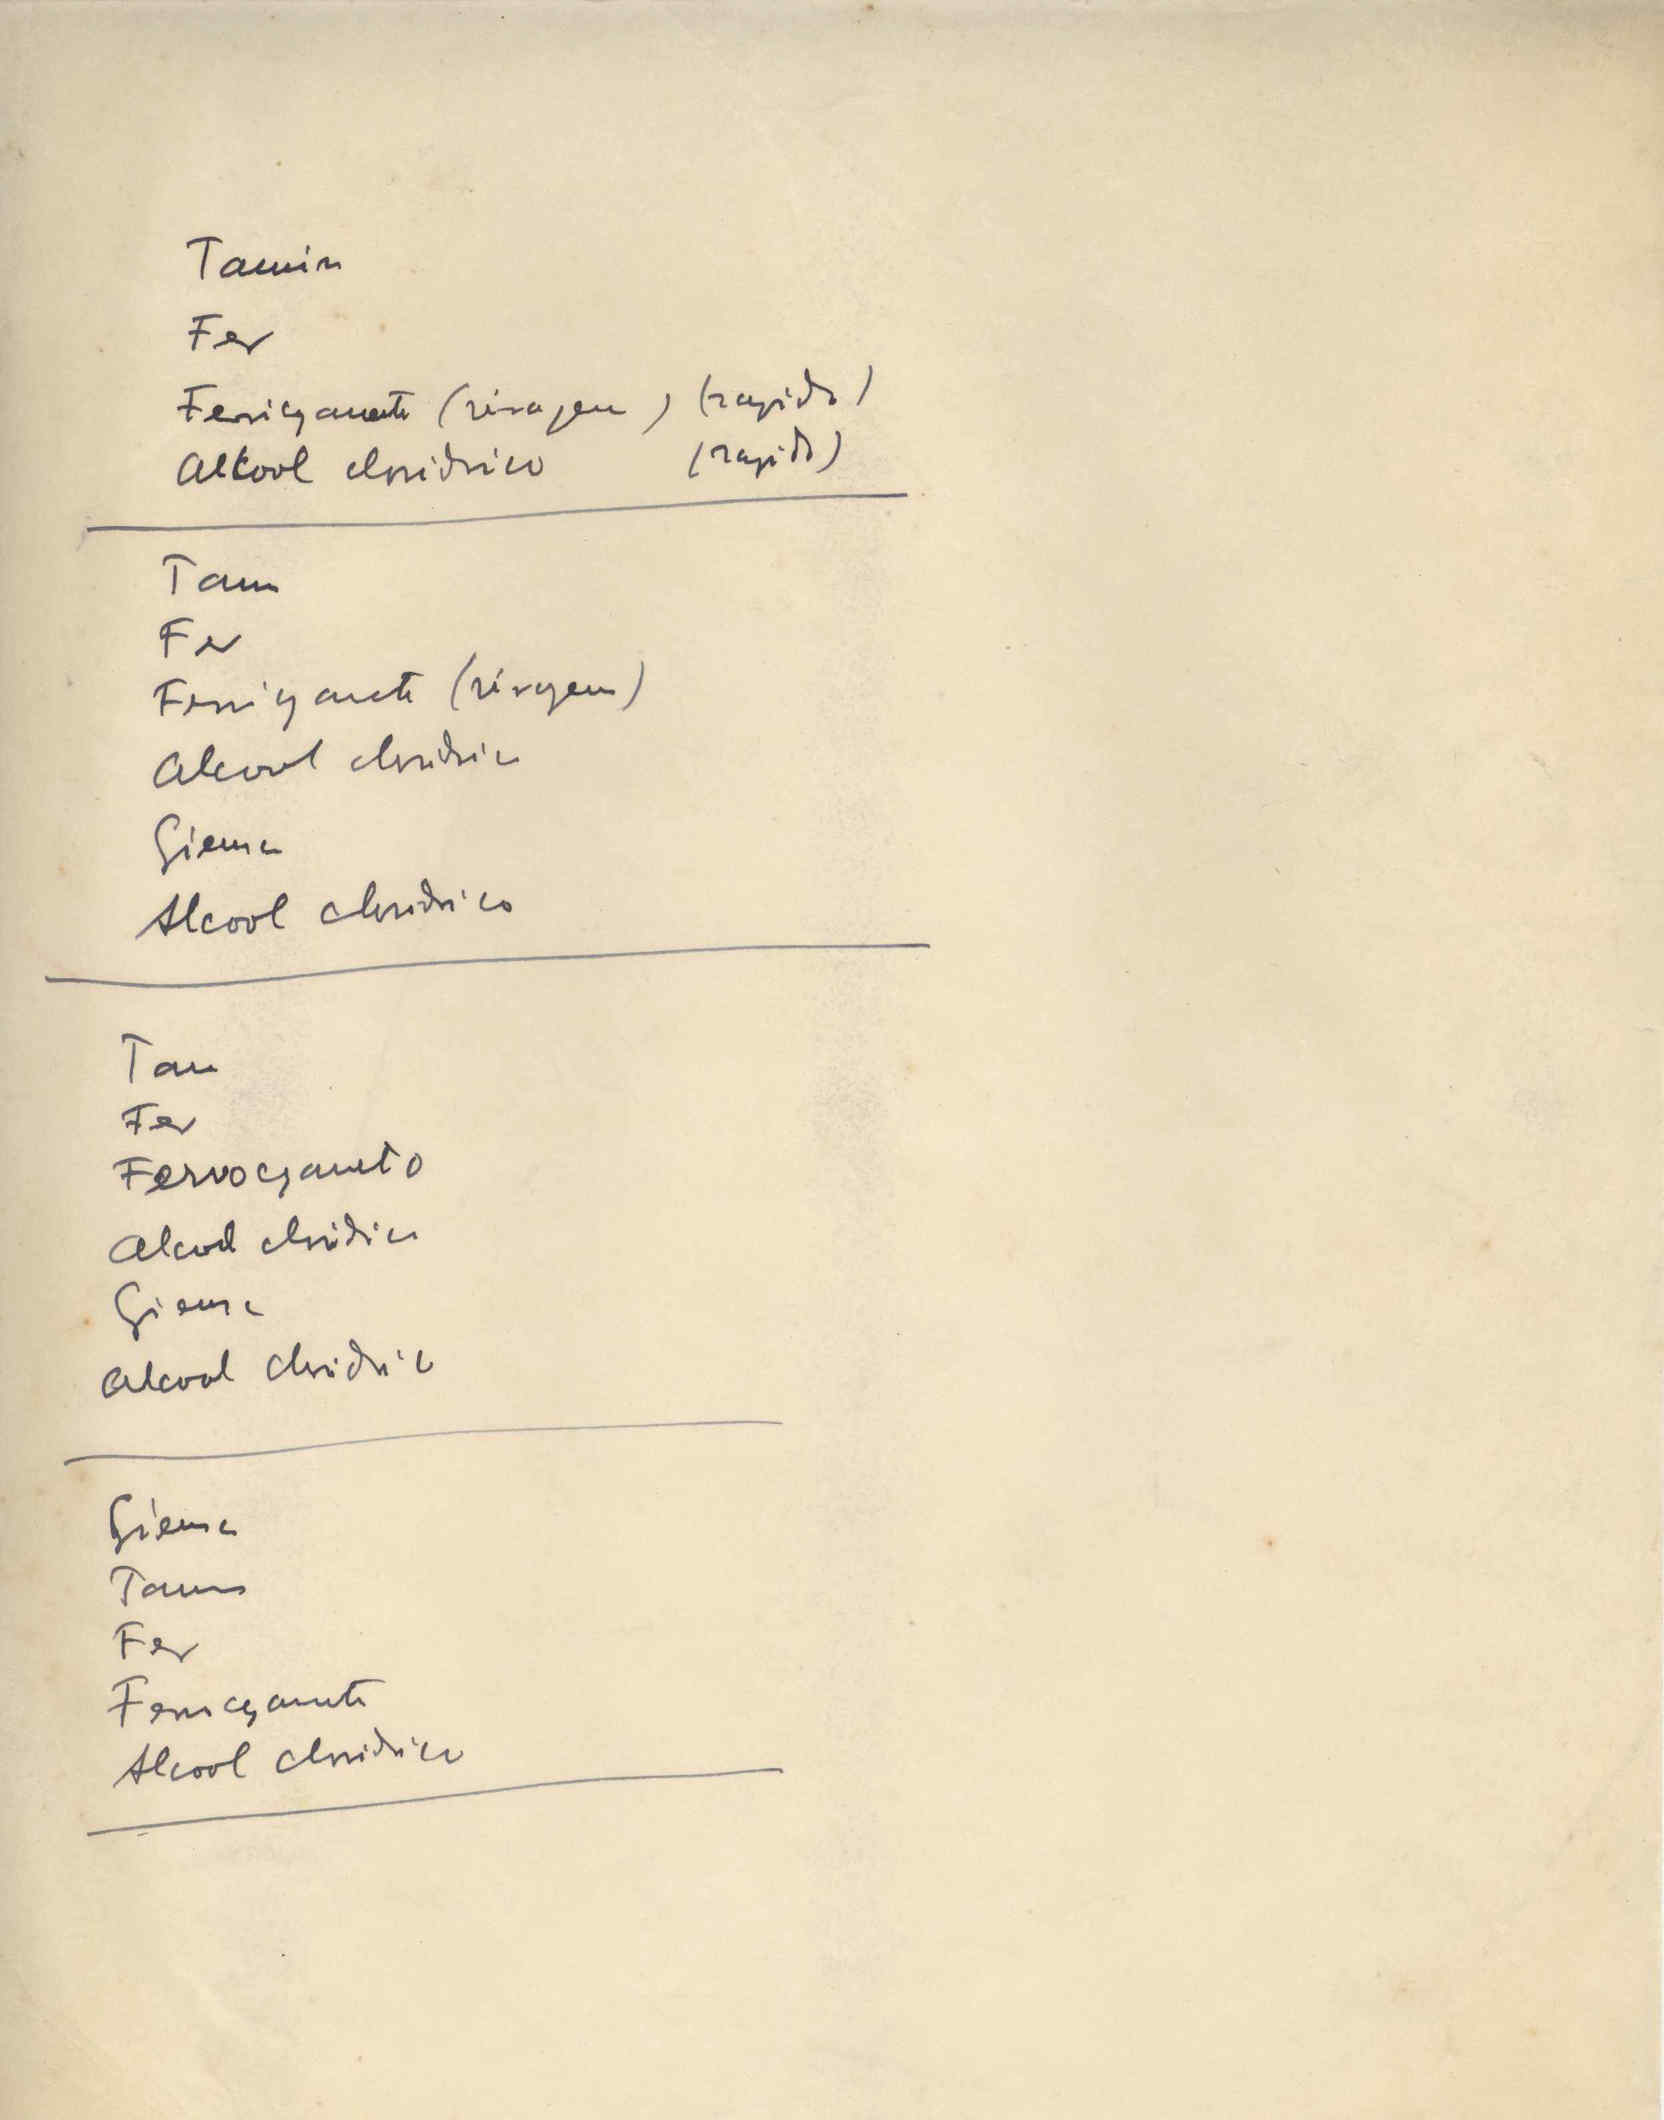 Tannin
Fer
Ferricyaneto (viragem) (rapido)
Alkool cloridrico (rapido)
Tann
Fer
Ferricyaneto (viragem)
Alcool cloridrico
Giemsa
Alcool cloridrico
Tan
Fer
Ferrocyaneto
Alcool cloridrico
Giemsa
Alcool cloridrico
Giemsa
Tann
Fer
Ferricyaneto
Alcool cloridrico